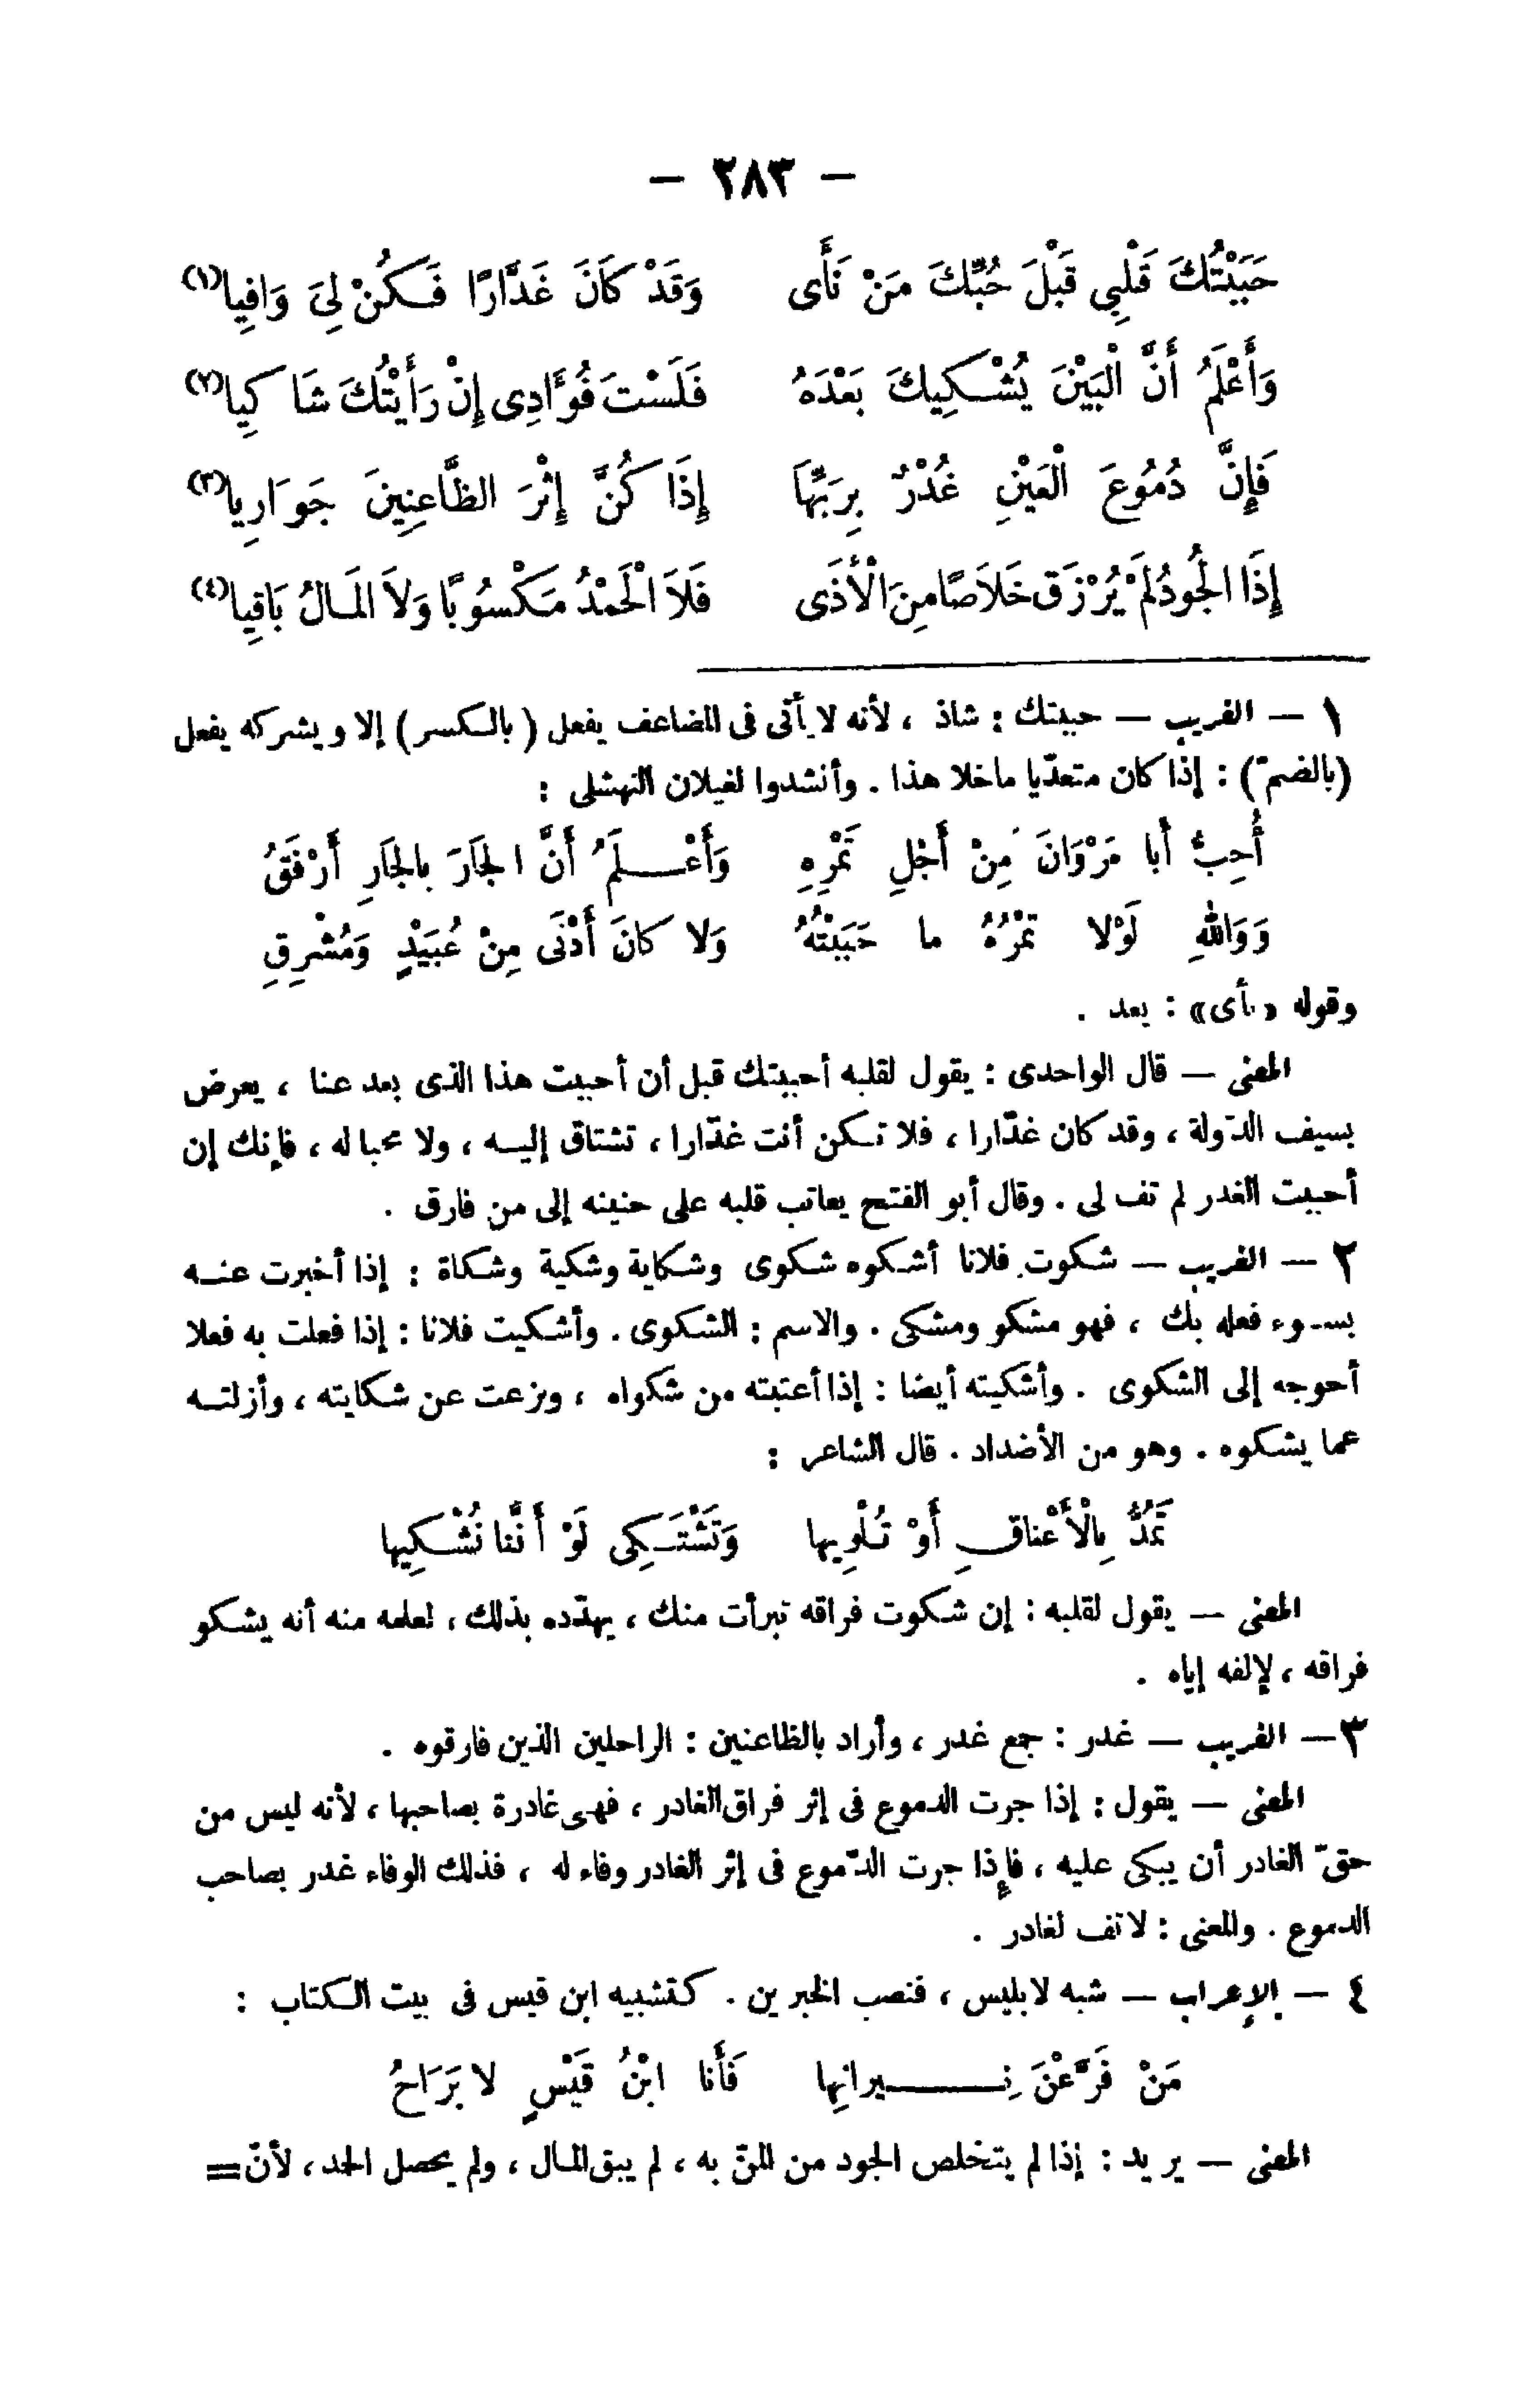 — ٢٨٣ —
حَبَبْتُكَ قَلْبِى قَبْلَ حُبِّكَ مَنْ نَأَى وَقَدْ كَانَ غَدَّارًا فَكُنْ لِىَ وَافِيا (١)
وَأَعْلَمُ أَنَّ الْبَيْنَ يُشْكِيكَ بَعْدَهُ فَلَسْتَ فُؤَادِى إِنْ رَأَيْتُكَ شَاكِيا (٢)
فَإِنَّ دُمُوعَ الْعَيْنِ غُدْرٌ بِرَبِّهَا إِذَا كُنَّ إِثْرَ الظَّاعِنِينَ جَوَارِيا (٣)
إِذَا الْجُودُ لَمْ يُرْزَقْ خَلَاصًا مِنَ الْأَذَى فَلَا الْحَمْدُ مَكْسُوبًا وَلاَ الْمَالُ بَاقِيا (٤)
١ — الغريب — حببتك : شاذ ، لأنه لا يأتى فى المضاعف يفعل ( بالكسر ) إلا ويشركه يفعل
(بالضم) : إذا كان متعدّيا ماخلا هذا . وأنشدوا لغيلان النهشلى :
أُحِبُّ أَبا مَرْوَانَ مِنْ أَجْلِ تَمْرِهِ وَأَعْلَمُ أَنَّ الجَارَ بالجَارِ أَرْفَقُ
وَوَاللهِ لَوْلا تَمْرُهُ ما حَبَبْتُهُ وَلا كانَ أَدْنَى مِنْ عُبَيْدٍ وَمُشْرِقِ
وقوله «نأى» : بعد .
المعنى — قال الواحدى : يقول لقلبه أحببتك قبل أن أحببت هذا الذى بعد عنا ، يعرض
بسيف الدّولة ، وقد كان غدّارا ، فلا تكن أنت غدّارا ، تشتاق إليه ، ولا محبا له ، فإنك إن
أحببت الغدر لم تف لى . وقال أبو الفتح يعاتب قلبه على حنينه إلى من فارق .
٢ — الغريب — شكوت فلانا أشكوه شكوى وشكاية وشكية وشكاة : إذا أخبرت عنه
بسوء فعله بك ، فهو مشكو ومشكى . والاسم : الشكوى . وأشكيت فلانا : إذا فعلت به فعلا
أحوجه إلى الشكوى . وأشكيته أيضا : إذا أعتبته من شكواه ، ونزعت عن شكايته ، وأزلته
عما يشكوه . وهو من الأضداد . قال الشاعر :
تَمُدُّ بِالْأَعْناقِ أَوْ تَلْوِيها وَتَشْتَكِى لَوْ أَنَّنا نُشْكِيها
المعنى — يقول لقلبه : إن شكوت فراقه تبرأت منك ، يهدّده بذلك ، لعلمه منه أنه يشكو
فراقه ، لإلفه إياه .
٣ — الغريب — غدر : جمع غدر ، وأراد بالظاعنين : الراحلين الذين فارقوه .
المعنى — يقول : إذا جرت الدموع فى إثر فراق الغادر ، فهى غادرة بصاحبها ، لأنه ليس من
حقّ الغادر أن يبكى عليه ، فإذا جرت الدّموع فى إثر الغادر وفاء له ، فذلك الوفاء غدر بصاحب
الدموع . والمعنى : لا تف لغادر .
٤ — الإعراب — شبه لا بليس ، فنصب الخبرين . كتشبيه ابن قيس فى بيت الكتاب :
مَنْ فَرَّ عَنْ نِيرانِها فَأَنا ابْنُ قَيْسٍ لا بَرَاحُ
المعنى — يريد : إذا لم يتخلص الجود من المنّ به ، لم يبق المال ، ولم يحصل الحمد ، لأنّ =